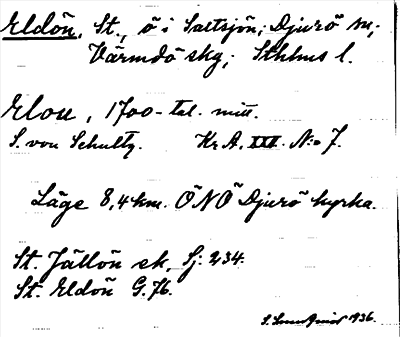 Eldön, St., ö i Saltsjön; Djurö sn,
Värmdö skg; Sthlms l.
Elou, 1700-tal. mitt.
S. von Schultz. Kr A. XXX. N:o 7.
Läge 8,4 km. ÖNÖ Djurö kyrka.
St. Jällön ek. Sj: 234.
St. Eldön G. 76.
1936.